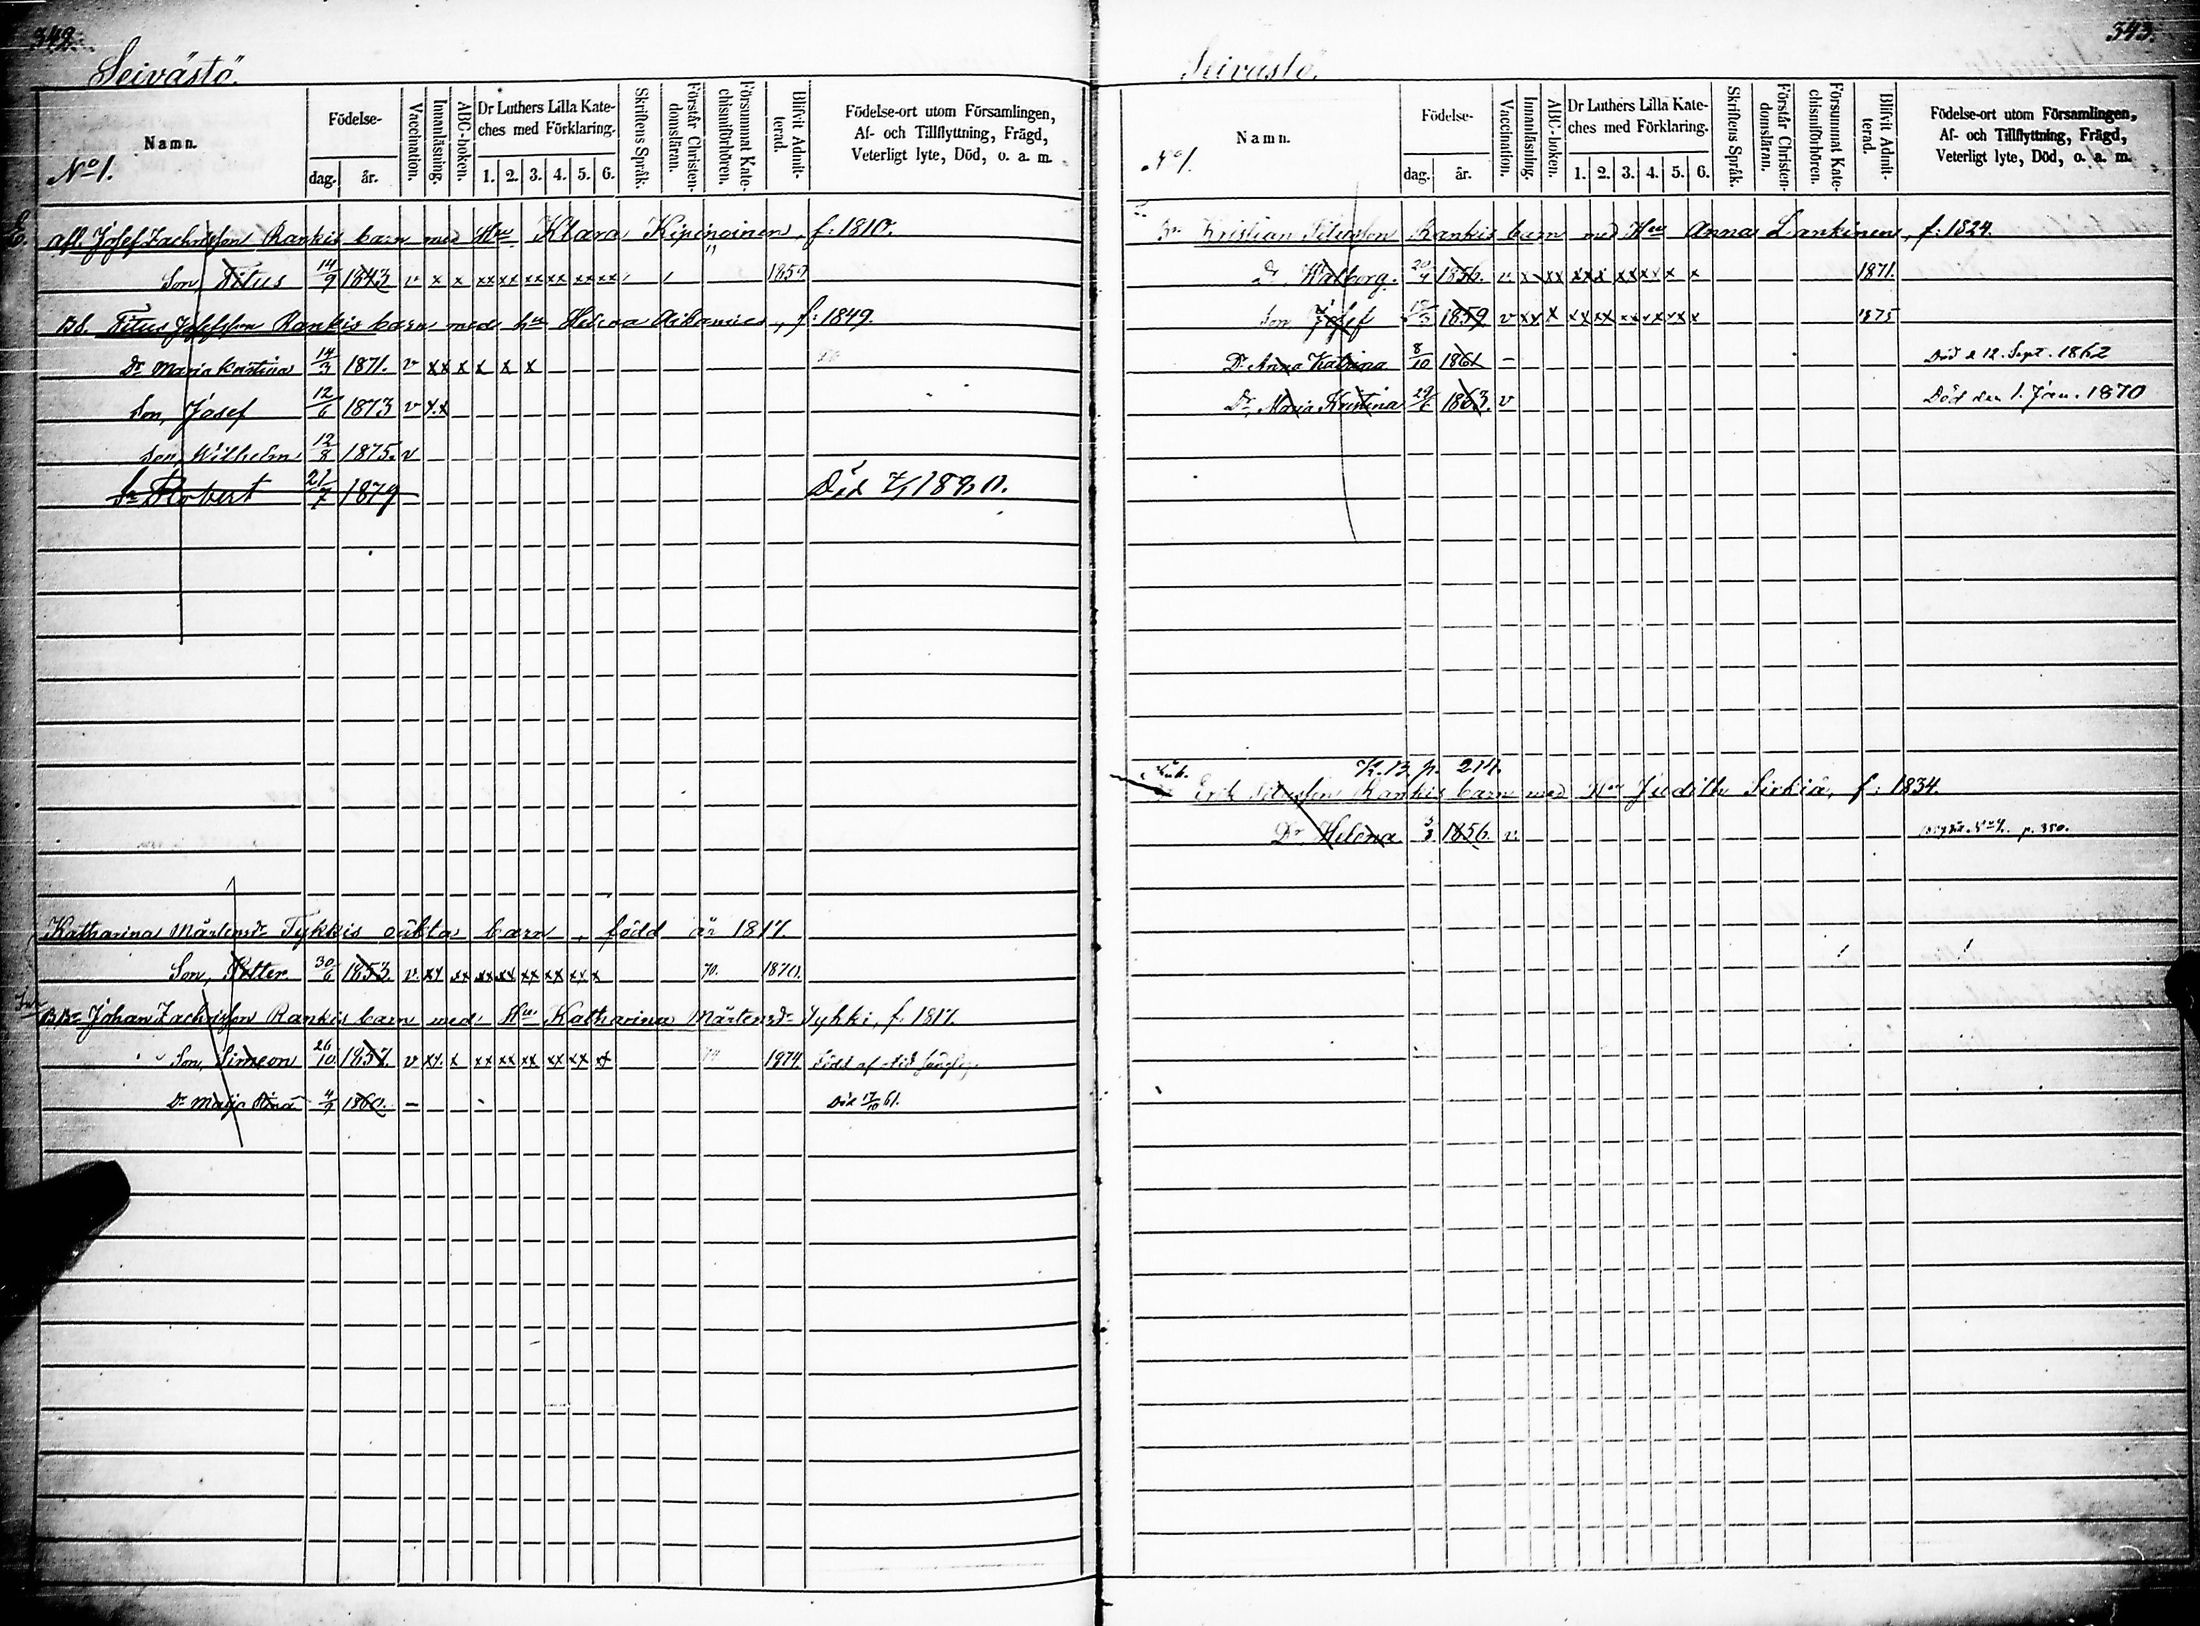 342.
Seivästö.
Namn.
No 1.
Födelse-
dag. år.
Vaccination.
Innanläsning.
ABC-boken.
Dr Luthers Lilla Kate-
ches med Förklaring.
1. 2. 3. 4. 5. 6.
Skriftens Språk.
Förstår Christen-
domsläran.
Försummat Kate-
chismiförhören.
Blifvit Admit-
terad.
Födelse-ort utom Församlingen,
Af- och Tillflyttning, Frägd,
Veterligt lyte, Död, o. a. m.
afl. Josef Zachrisson Rankis barn med Hu Klara Kipinoinen, f. 1810.
Son, Titus 14/9 1843 v x x xx xx xx xx xx xx 1859
Bd. Titus Josefsson Rankis barn med hu Helena, f. 1849.
Dr Maria Kristina 14/3 1871. v xx x x x x
Son, Josef 12/6 1873 v x.x
Son, Wilhelm 12/8 1875. v
Sn Robert 21/7 1879 Död
Katharina Mårtensdr Tykkis oäkta barn, född år 1817.
Son, Petter 30/6 1853. v. xx xx xx xx xx xx xx x 70. 1870.
Johan Zachrisson Rankis barn med Hu Katharina Mårtensdr Tykki, f. 1817.
Son, Simeon 26/10 1857. v xx. x xx xx xx xx xx x 1874.
Dr Maija Stina 4/9 1860. - Död 17/10 61.
343.
Seivästö.
Namn.
No 1.
Födelse-
dag. år.
Vaccination.
Innanläsning.
ABC-boken.
Dr Luthers Lilla Kate-
ches med Förklaring.
1. 2. 3. 4. 5. 6.
Skriftens Språk.
Förstår Christen-
domsläran.
Försummat Kate-
chismiförhören.
Blifvit Admit-
terad.
Födelse-ort utom Församlingen,
Af- och Tillflyttning, Frägd,
Veterligt lyte, Död, o. a. m.
Kristian Petersson Rankis barn med Hu Anna Lankinen, f. 1824.
Dr Walborg. 1856. v. x xx xxx xx xx x x 1871.
Son Josef 1859 v xx x xx xx xx xx xx x 1875
Dr Anna Katrina 8/10 1861 - Död d 12. Sept. 1862
Dr Maria Kristina 29/6 1863. v Död den 1. Jan. 1870
K. B. p. 214.
Erik Petersson Rankis barn med Hu Judith Sirkiä, f. 1834.
Dr Helena 1856. v. p. 350.